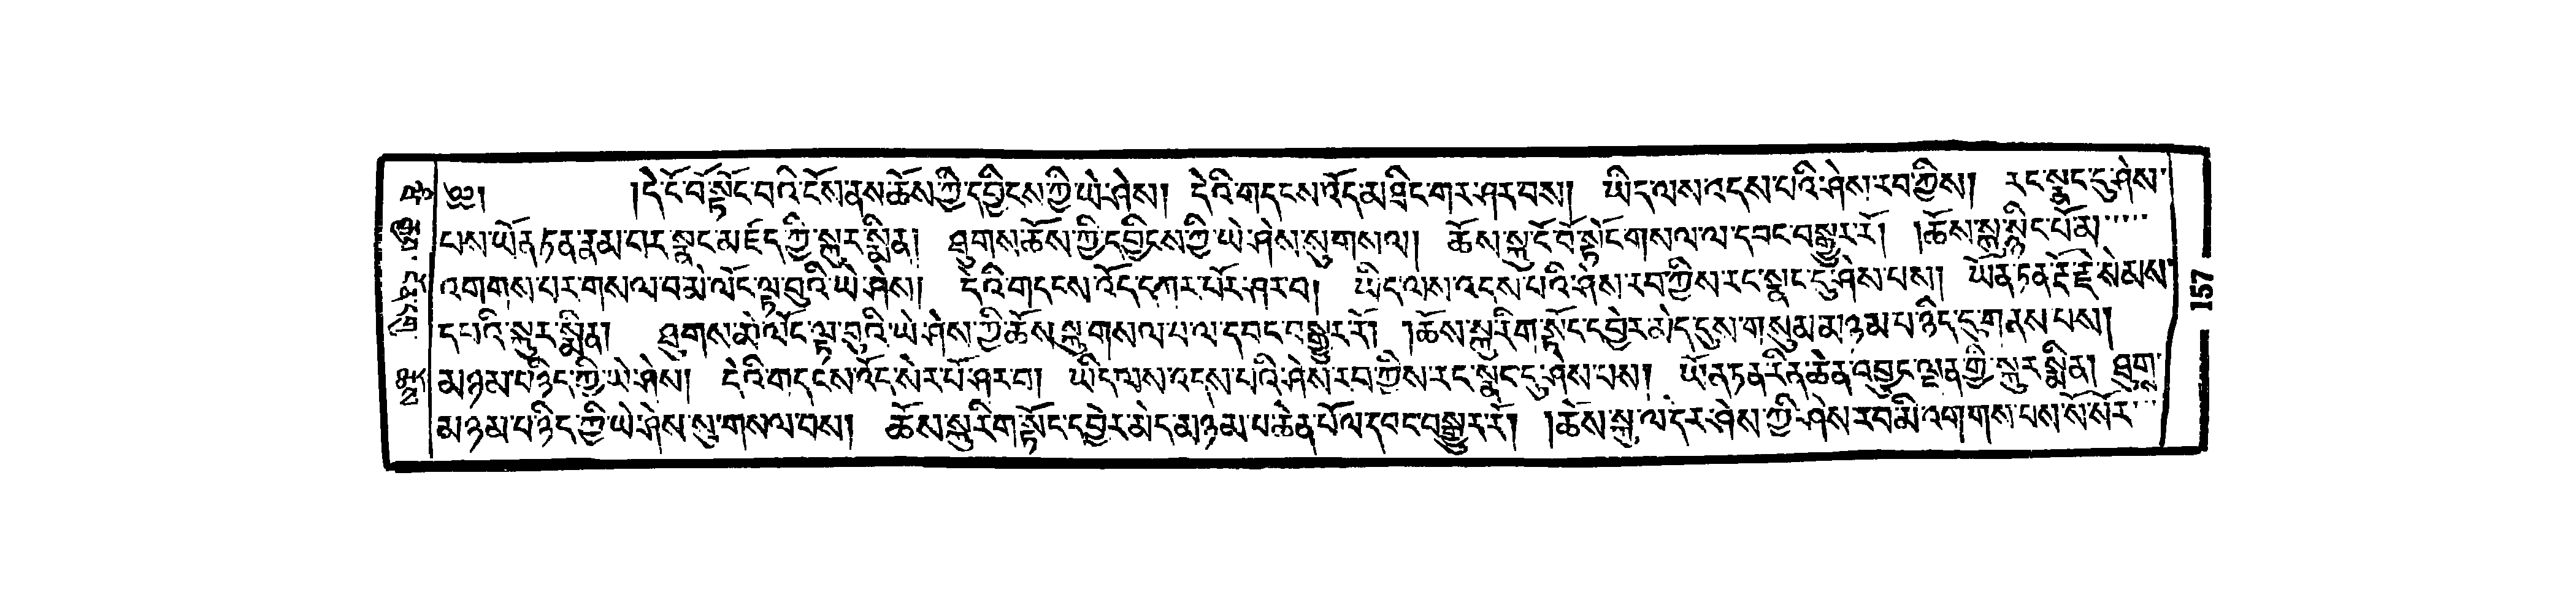 ༄༅། །དེ་ངོ་བོ་སྟོང་བའི་ངོས་ནས་ཆོས་ཀྱི་དབྱིངས་ཀྱི་ཡེ་ཤེས། དེའི་གདངས་འོད་མཐིང་གར་ཤར་བས། ཡིད་ལས་འདས་པའི་ཤེས་རབ་ཀྱིས། རང་སྣང་དུ་ཤེས་
པས་ཡོན་ཏན་རྣམ་པར་སྣང་མཛད་ཀྱི་སྐུར་སྨིན། ཐུགས་ཆོས་ཀྱི་དབྱིངས་ཀྱི་ཡེ་ཤེས་སུ་གསལ། ཆོས་སྐུ་ངོ་བོ་སྟོང་གསལ་ལ་དབང་བསྒྱུར་རོ། །ཆོས་སྐུ་སྙིང་པོ་མ་.....
འགགས་པར་གསལ་བ་མེ་ལོང་ལྟ་བུའི་ཡེ་ཤེས། དེའི་གདངས་འོད་དཀར་པོར་ཤར་བ། ཡིད་ལས་འདས་པའི་ཤེས་རབ་ཀྱིས་རང་སྣང་དུ་ཤེས་པས། ཡོན་ཏན་རྡོ་རྗེ་སེམས་
དཔའི་སྐུར་སྨིན། ཐུགས་མེ་ལོང་ལྟ་བུའི་ཡེ་ཤེས་ཀྱི་ཆོས་སྐུ་གསལ་པ་ལ་དབང་བསྒྱུར་རོ། །ཆོས་སྐུ་རིག་སྟོང་དབྱེར་མེད་དུས་གསུམ་མཉམ་པ་ཉིད་དུ་གནས་པས།
མཉམ་པ་ཉིད་ཀྱི་ཡེ་ཤེས། དེའི་གདངས་འོད་སེར་པོ་ཤར་བ། ཡིད་ལས་འདས་པའི་ཤེས་རབ་ཀྱིས་རང་སྣང་དུ་ཤེས་པས། ཡོན་ཏན་རིན་ཆེན་འབྱུང་ལྡན་གྱི་སྐུར་སྨིན། ཐུགས་
མཉམ་པ་ཉིད་ཀྱི་ཡེ་ཤེས་སུ་གསལ་བས། ཆོས་སྐུ་རིག་སྟོང་དབྱེར་མེད་མཉམ་པ་ཆེན་པོ་ལ་དབང་བསྒྱུར་རོ། །ཆོས་སྐུ་ལ་དེར་ཤེས་ཀྱི་ཤེས་རབ་མི་འགགས་པས་སོ་སོར་...
157